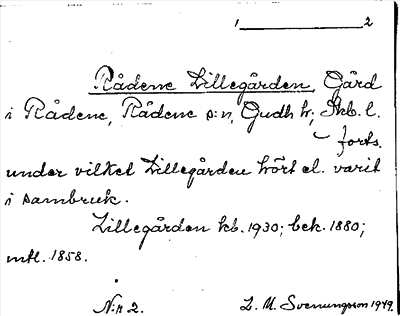 1 2
Rådene Lillegården, Gård
i Rådene, Rådene s:n, Gudh h; Skb. l.
forts.
under vilket Lillegården hört el. varit
i sambruk.
Lillegården kb. 1930; bek. 1880;
mtl. 1858.
N:r 2. L. M. Svenungsson 1949.